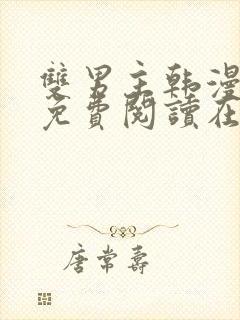 雙男主韩漫
免費閱讀在
唐常壽